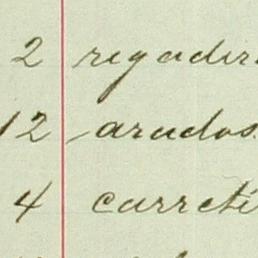 2 regadir
12 arados
4 carreti